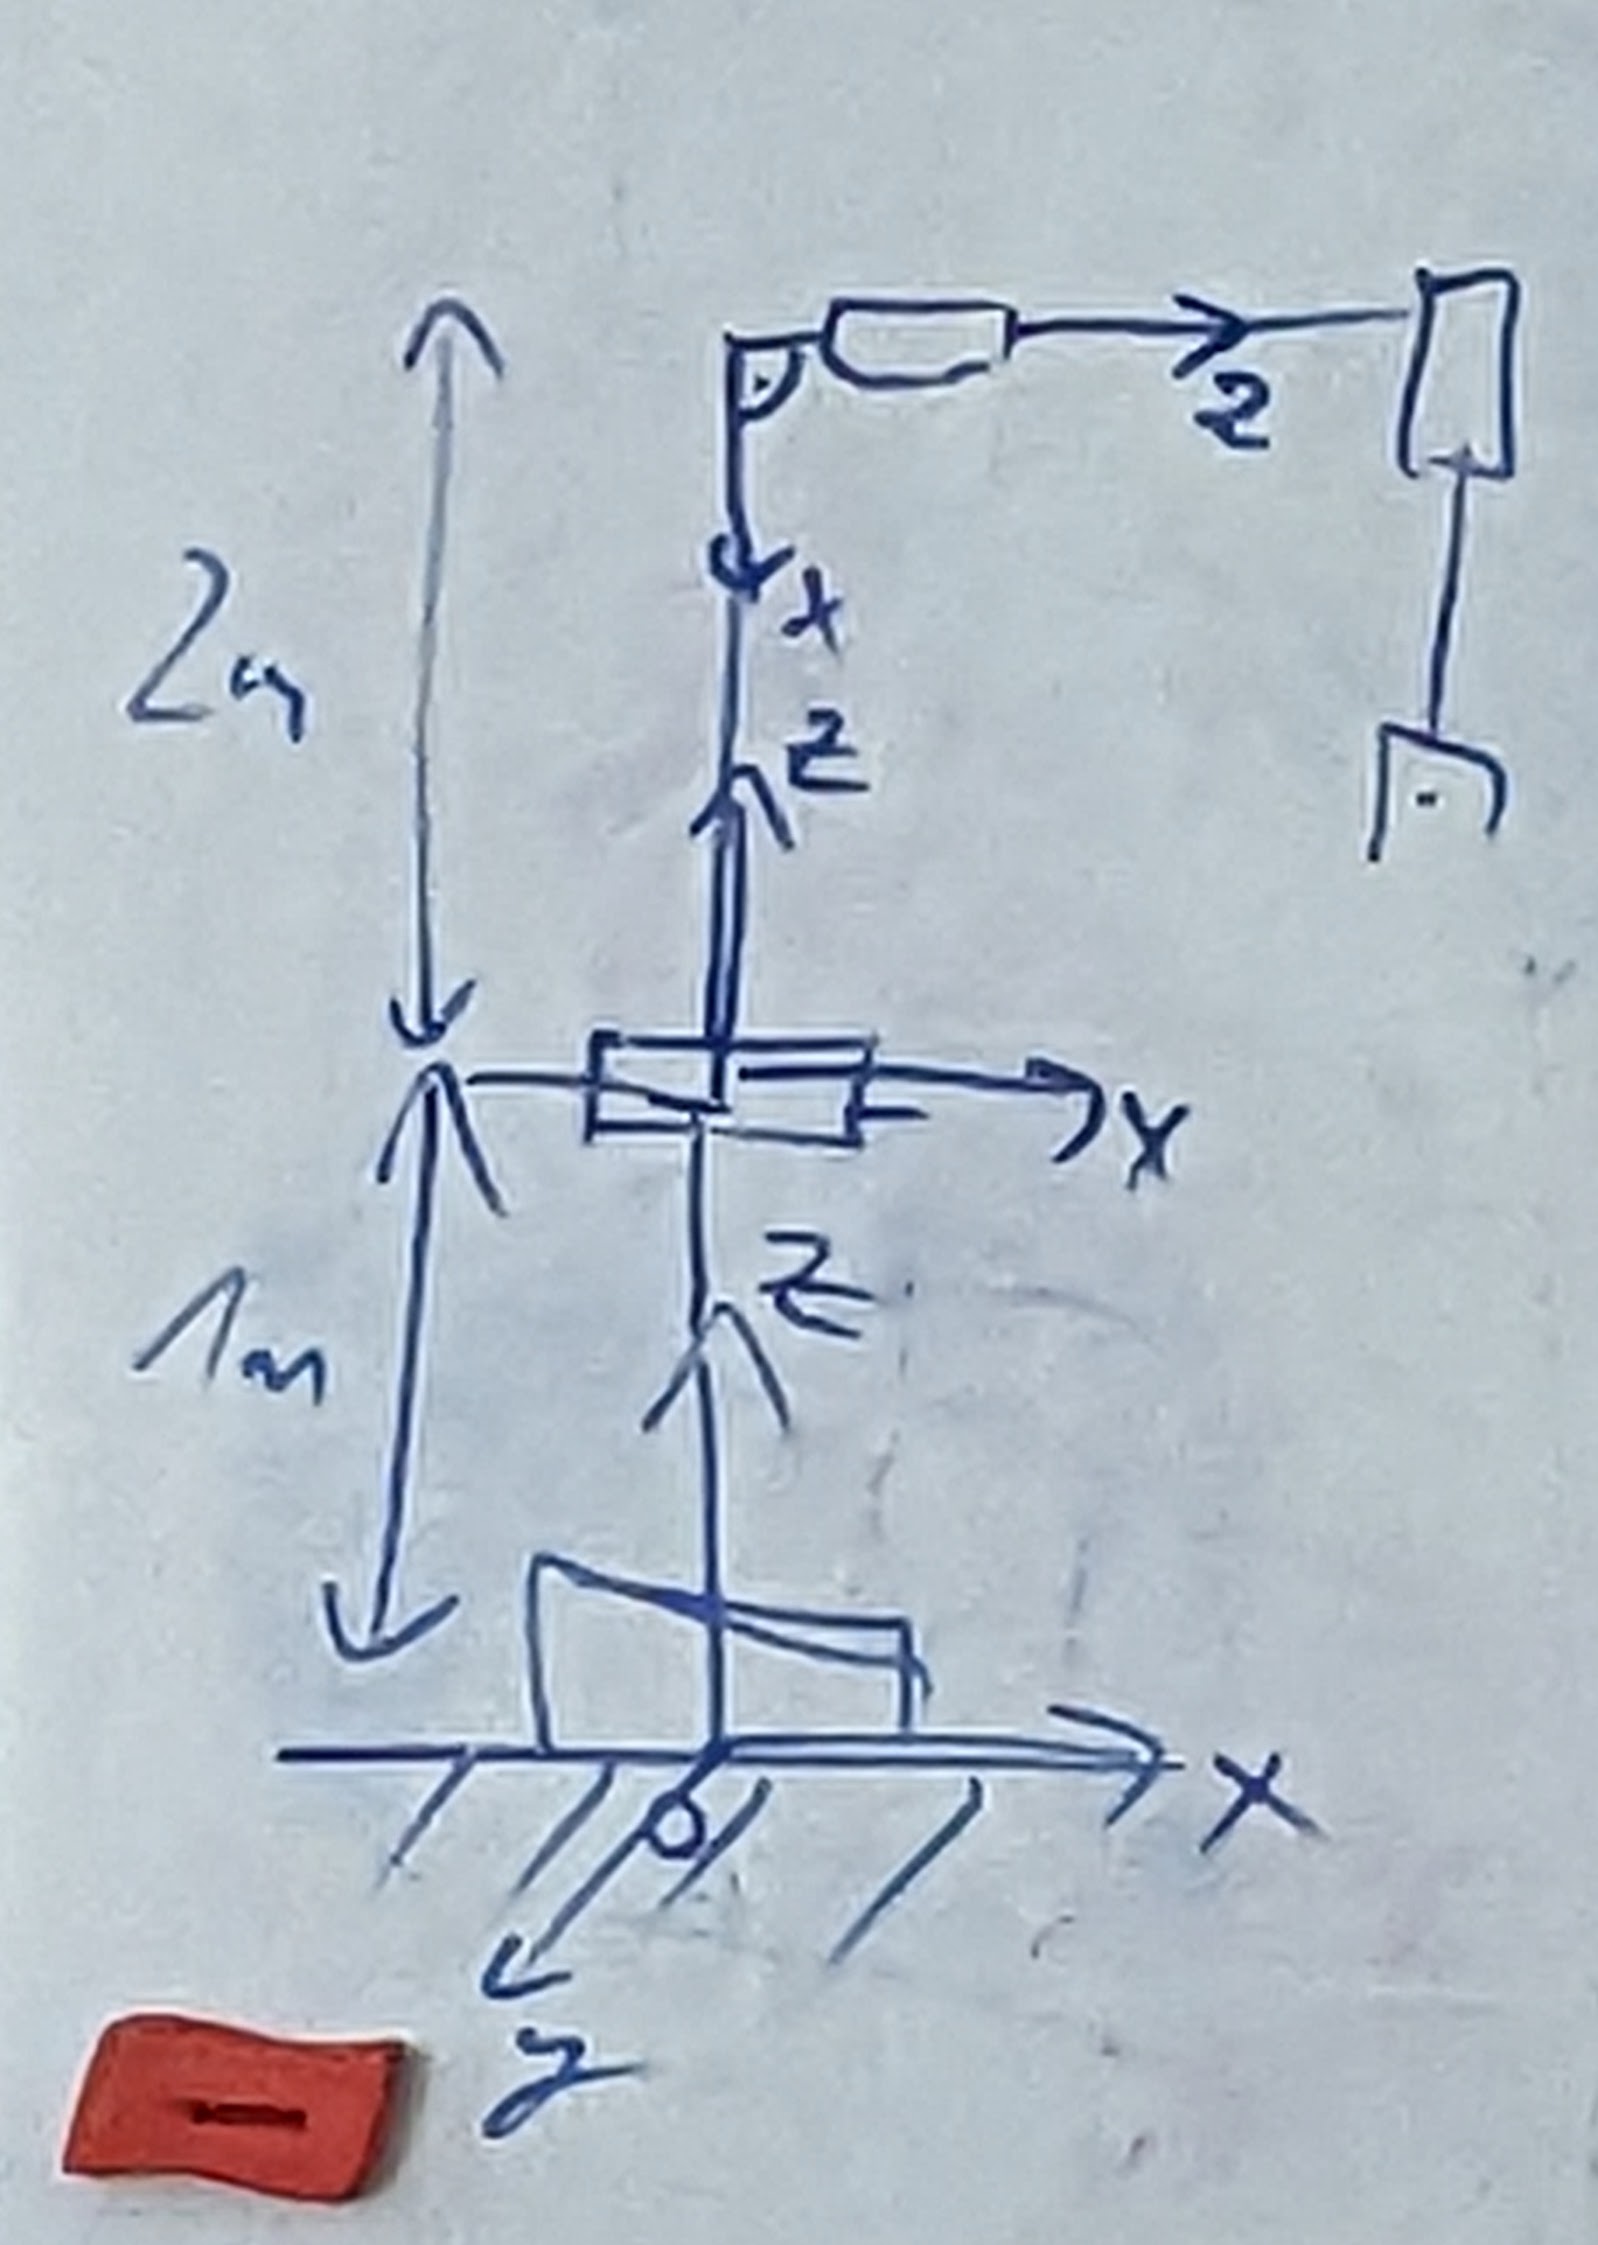 z
x
2m
z
x
1m
z
x
y